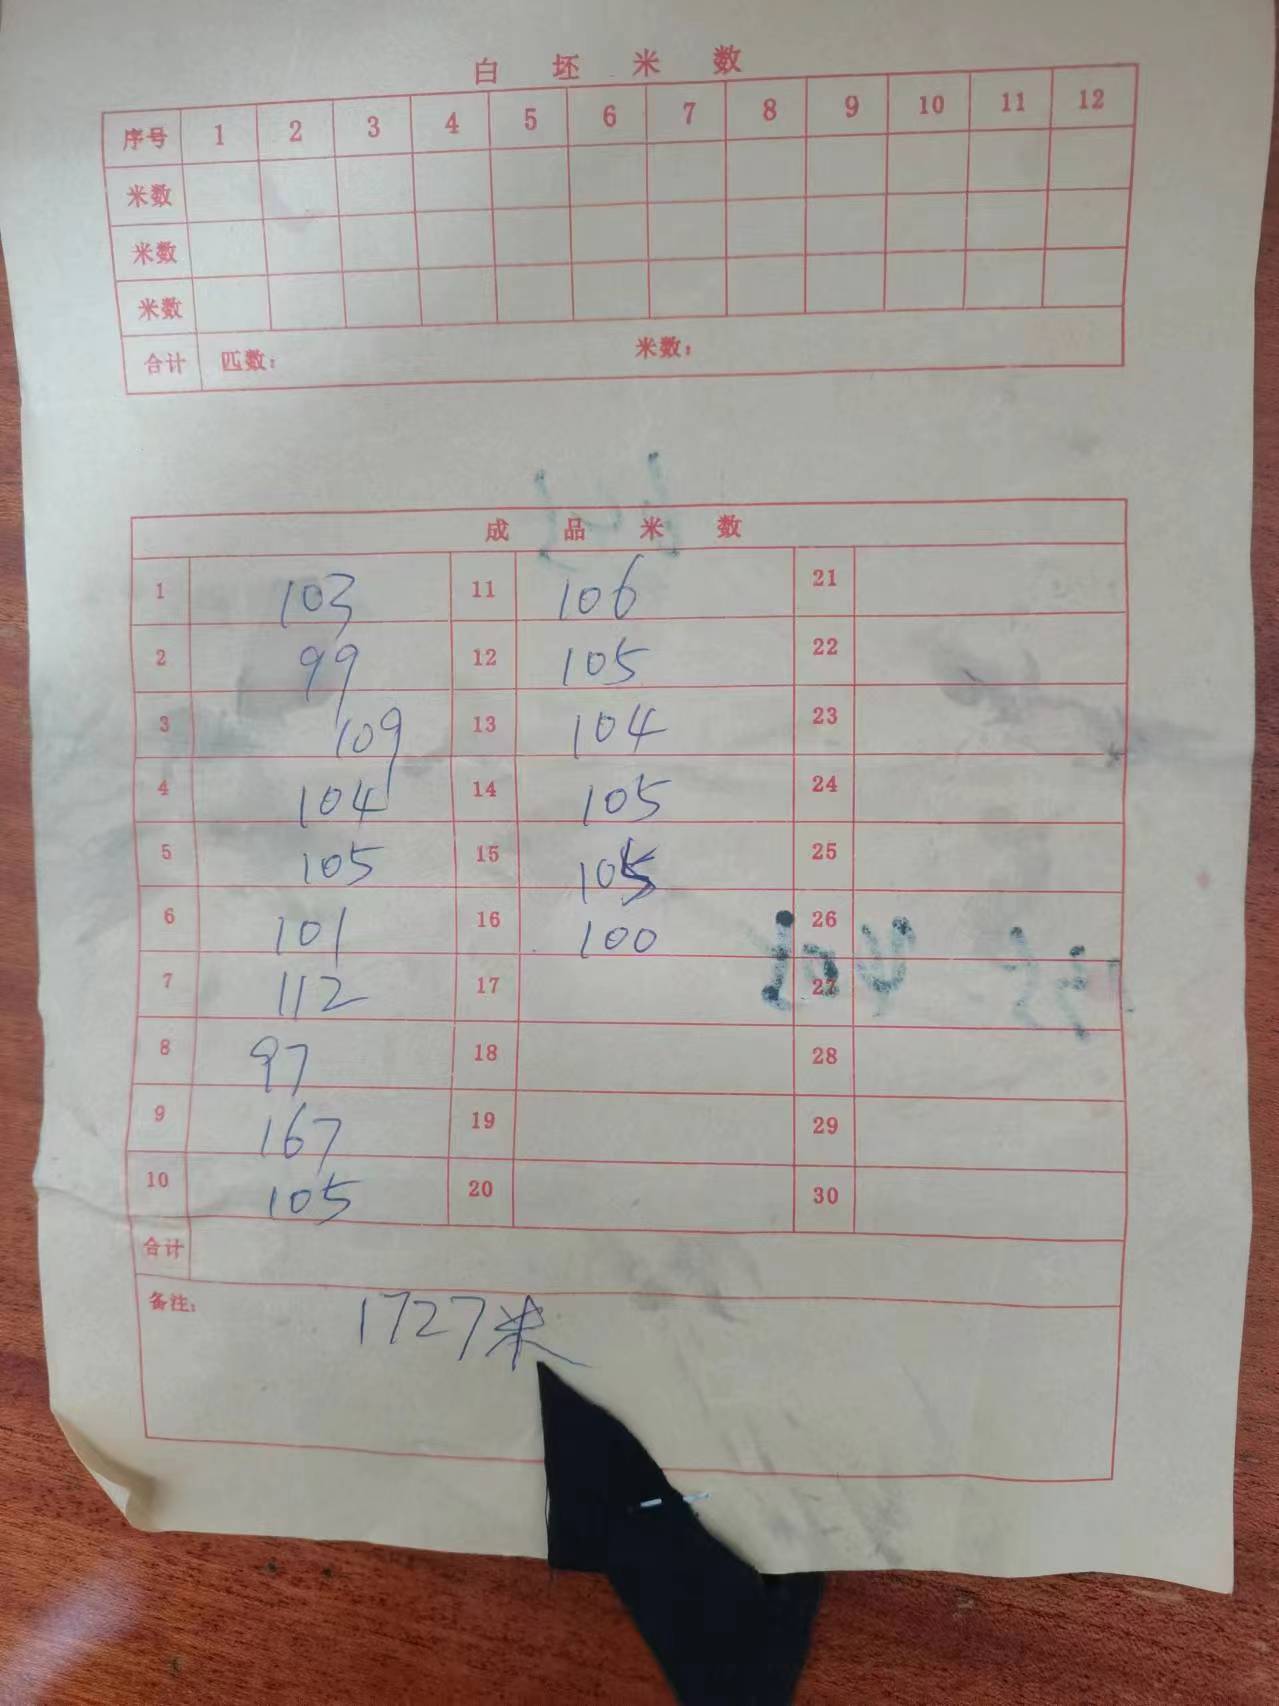 白 坯 米 数
序号 1 2 3 4 5 6 7 8 9 10 11 12
米数
米数
米数
合计 匹数： 米数：
成 品 米 数
1 103 11 106 21
2 99 12 105 22
3 109 13 104 23
4 104 14 105 24
5 105 15 105 25
6 101 16 100 26
7 112 17 27
8 97 18 28
9 167 19 29
10 105 20 30
合计
备注：
1727米